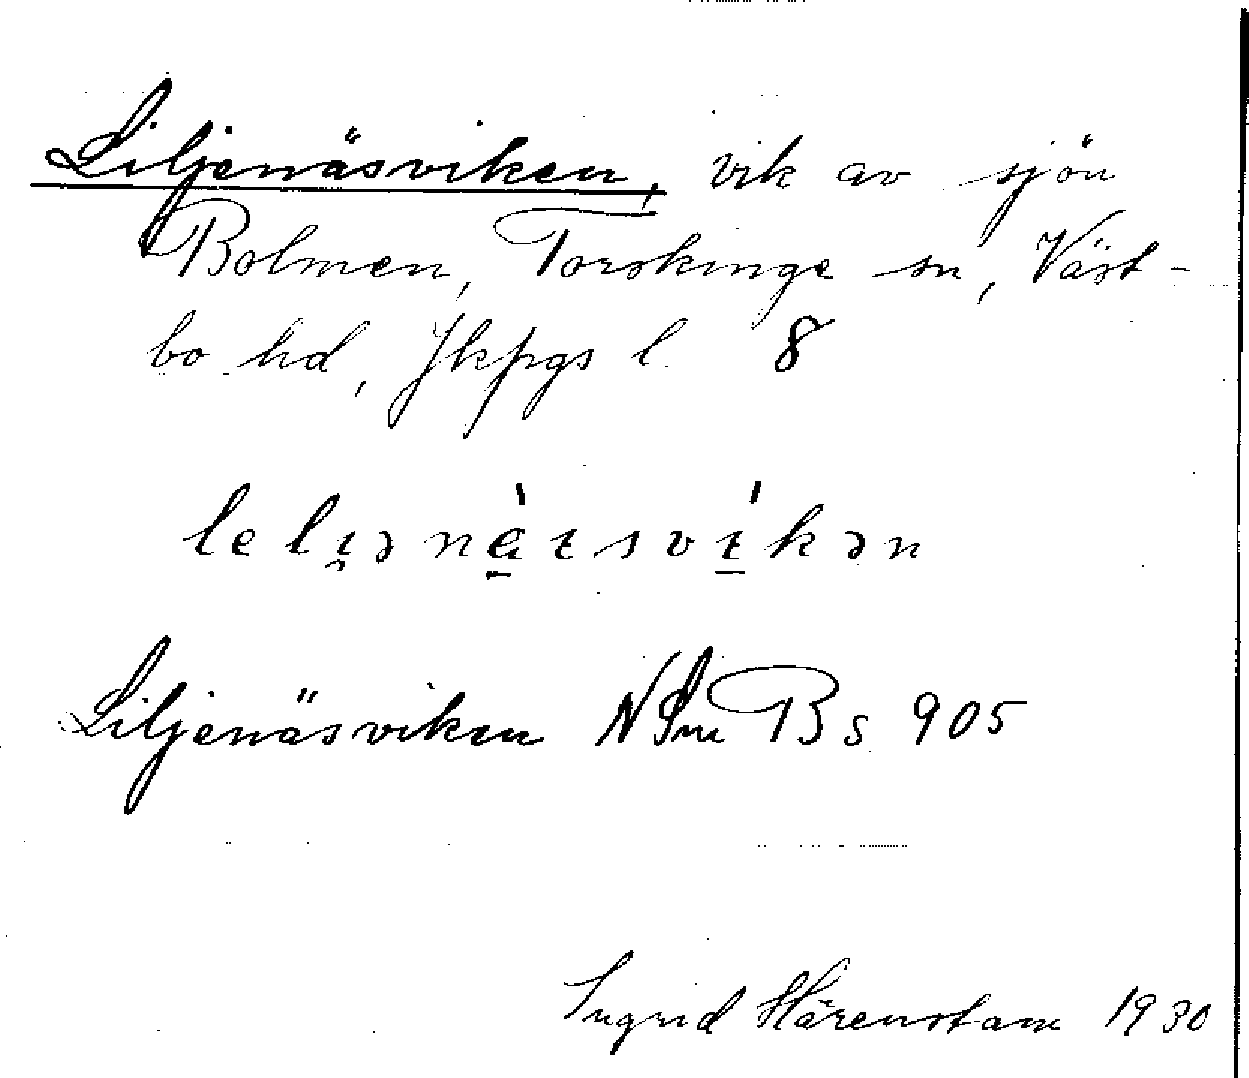 Liljenäsviken, vik av sjön
Bolmen, Torskinge sn, Väst-
bo hd, Jkpgs l. 8
Liljenäsviken NSm B s 905
Ingrid Härenstam 1930